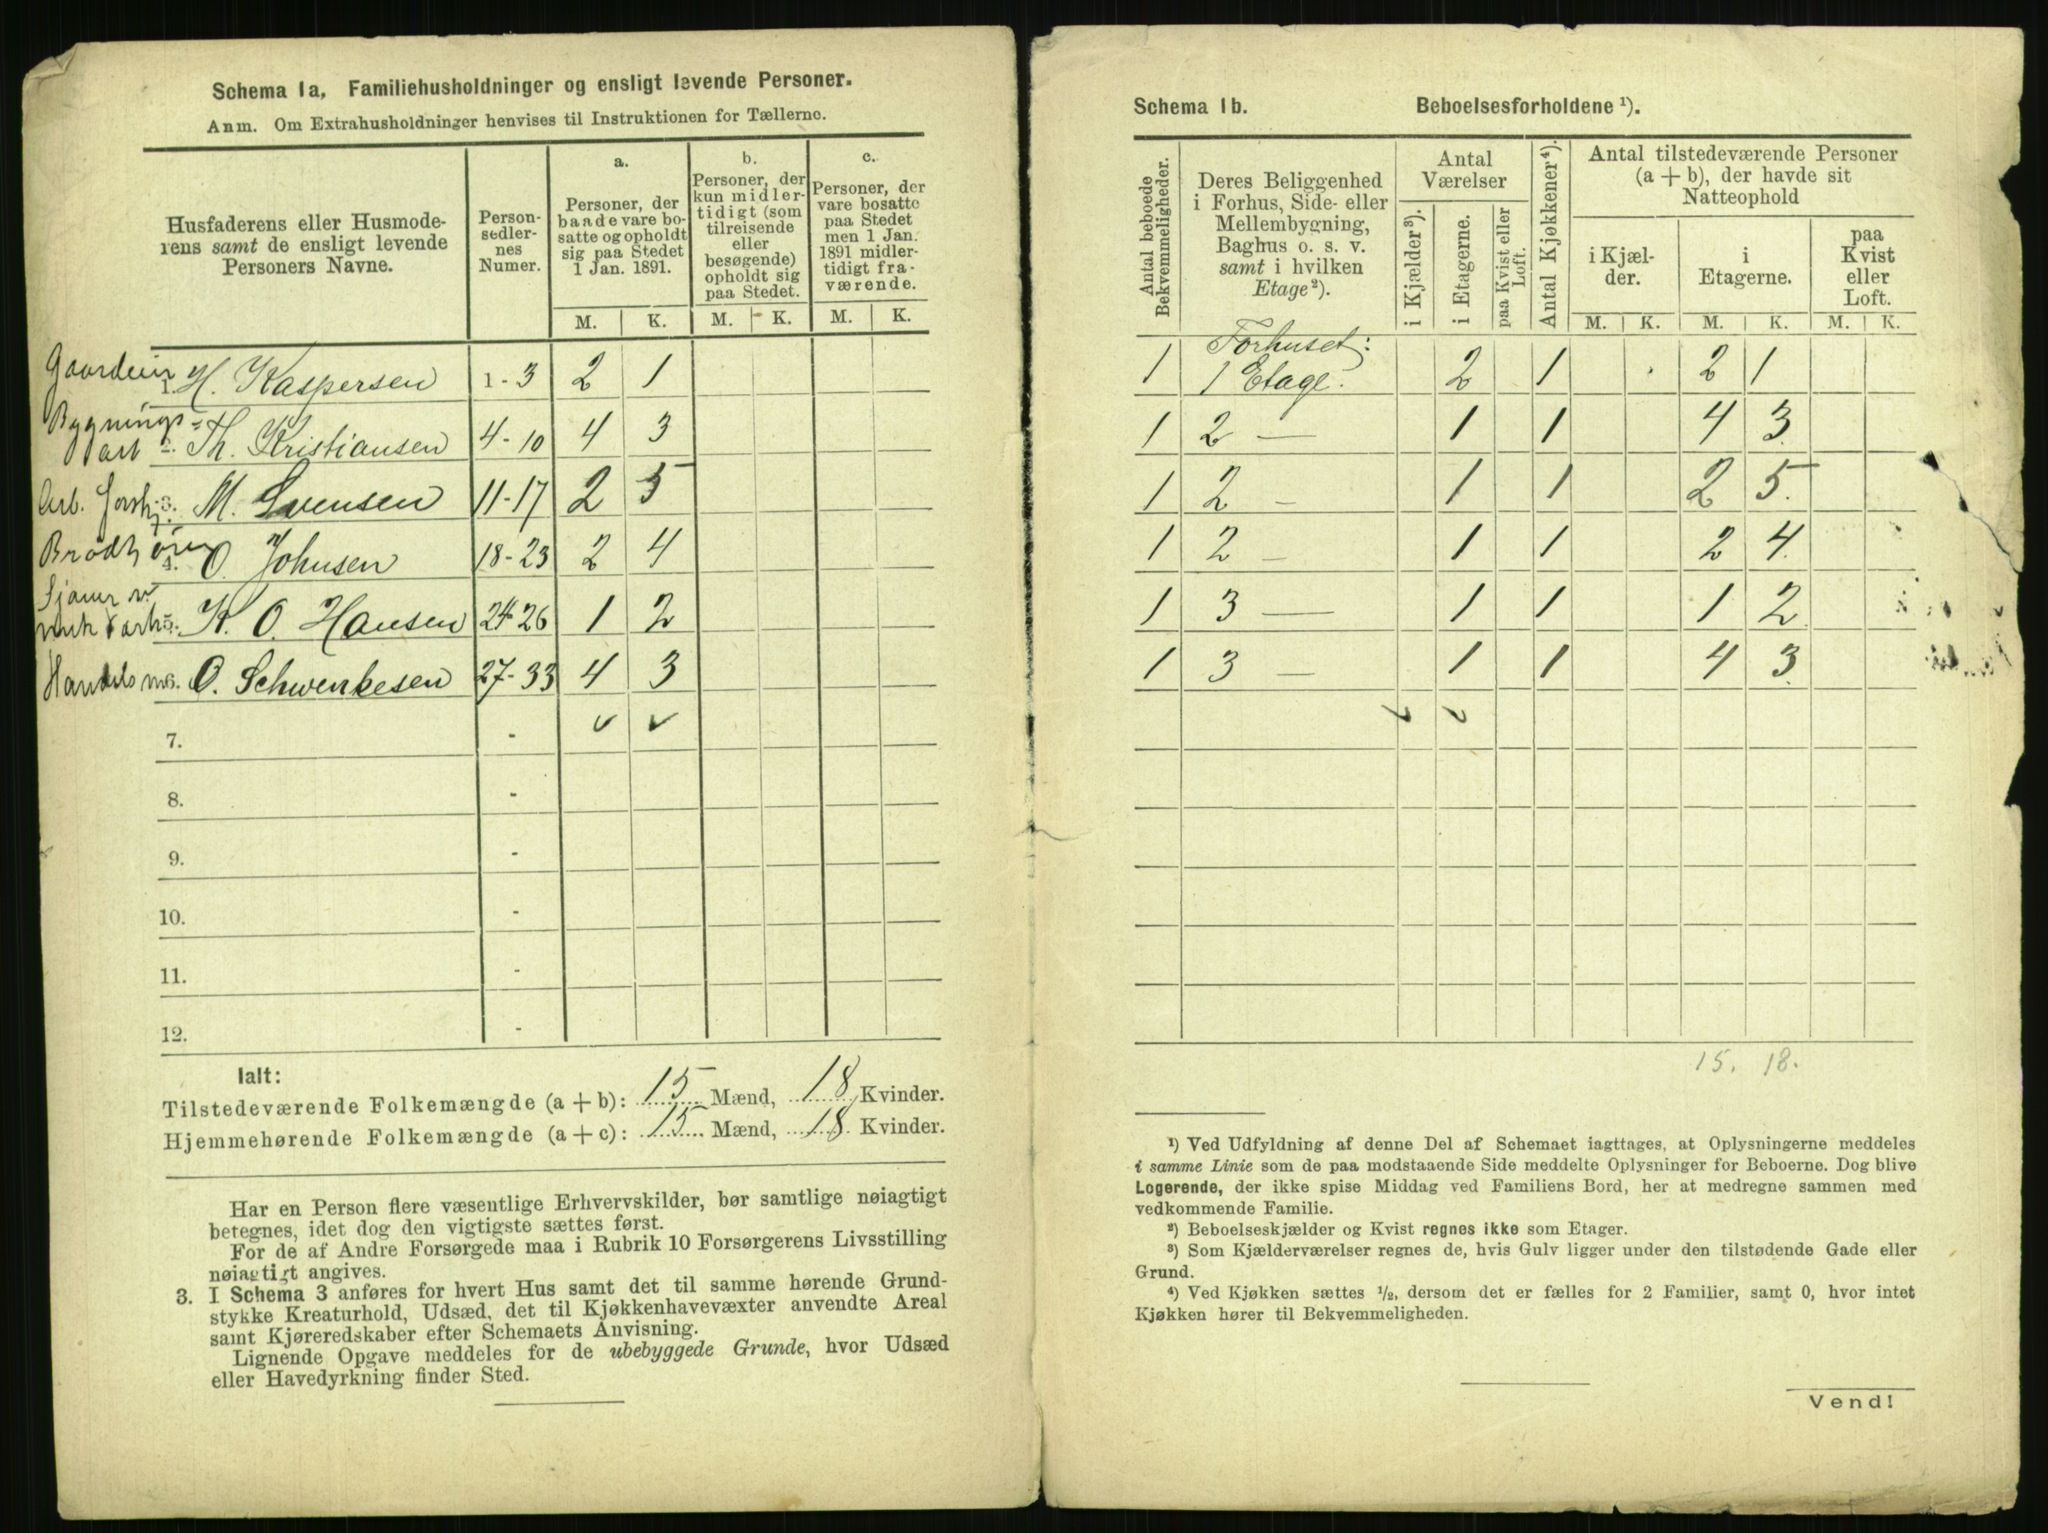 Schema 1a, Familiehusholdninger og ensligt levende Personer.
Anm. Om Extrahusholdninger henvises til Instruktionen for Tællerne.
Husfaderens eller Husmode-
rens samt de ensligt levende
Personers Navne.
Person-
sedler-
nes
Numer.
a.
Personer, der
baade vare bo-
satte og opholdt
sig paa Stedet
1 Jan. 1891.
b.
Personer, der
kun midler-
tidigt (som
tilreisende
eller
besøgende)
opholdt sig
paa Stedet.
c.
Personer, der
vare bosatte
paa Stedet
men 1 Jan.
1891 midler-
tidigt fra-
værende.
M. K. M. K. M. K.
1. H. Kaspersen 1-3 2 1
Bygnings=
2. Th. Kristiansen 4-10 4 3
Arb. 3. M. Svensen 11-17 2 5
4. O. Johnsen 18-23 2 4
5. K. O. Hansen 24-26 1 2
Handelsm 6. O. Schwenkesen 27-33 4 3
7. - ✓ ✓
8. -
9. -
10. -
11. -
12. -
Ialt:
Tilstedeværende Folkemængde (a + b): 15 Mænd, 18 Kvinder.
Hjemmehørende Folkemængde (a + c): 15 Mænd, 18 Kvinder.
Har en Person flere væsentlige Erhvervskilder, bør samtlige nøiagtigt
betegnes, idet dog den vigtigste sættes først.
For de af Andre Forsørgede maa i Rubrik 10 Forsørgerens Livsstilling
nøiagtigt angives.
3. I Schema 3 anføres for hvert Hus samt det til samme hørende Grund-
stykke Kreaturhold, Udsæd, det til Kjøkkenhavevæxter anvendte Areal
samt Kjøreredskaber efter Schemaets Anvisning.
Lignende Opgave meddeles for de ubebyggede Grunde, hvor Udsæd
eller Havedyrkning finder Sted.
Schema 1b. Beboelsesforholdene ¹).
Antal beboede
Bekvemmeligheder.
Deres Beliggenhed
i Forhus, Side- eller
Mellembygning,
Baghus o. s. v.
samt i hvilken
Etage²).
Antal
Værelser
i Kjælder³).
i Etagerne.
paa Kvist eller
Loft.
Antal Kjøkkener⁴).
Antal tilstedeværende Personer
(a + b), der havde sit
Natteophold
i Kjæl-
der.
i
Etagerne.
paa
Kvist
eller
Loft.
M. K. M. K. M. K.
Forhuset:
1 1 Etage. 2 1 2 1
1 2 — 1 1 4 3
1 2 — 1 1 2 5.
1 2 — 1 1 2 4.
1 3 — 1 1 1 2
1 3 — 1 1 4 3
15. 18.
¹) Ved Udfyldning af denne Del af Schemaet iagttages, at Oplysningerne meddeles
i samme Linie som de paa modstaaende Side meddelte Oplysninger for Beboerne. Dog blive
Logerende, der ikke spise Middag ved Familiens Bord, her at medregne sammen med
vedkommende Familie.
²) Beboelseskjælder og Kvist regnes ikke som Etager.
³) Som Kjælderværelser regnes de, hvis Gulv ligger under den tilstødende Gade eller
Grund.
⁴) Ved Kjøkken sættes ¹/₂, dersom det er fælles for 2 Familier, samt 0, hvor intet
Kjøkken hører til Bekvemmeligheden.
Vend!